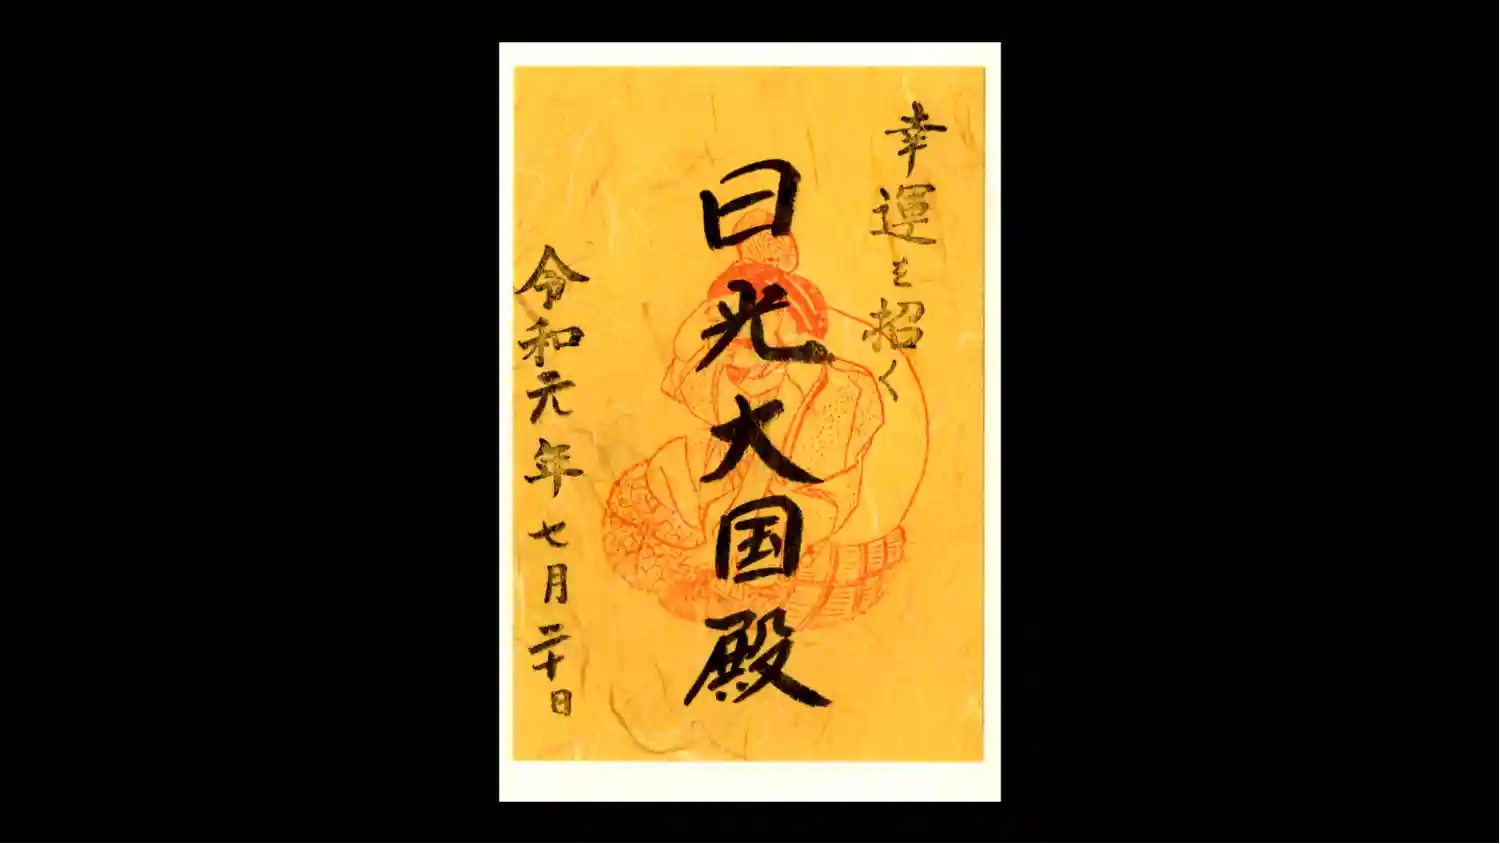 幸運を招く
日光大国殿
令和元年七月二十日